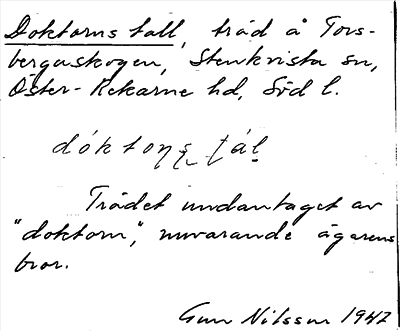 Doktorns tall, träd å Tors-
bergaskogen, Stenkvista sn,
Öster-Rekarne hd, Söd l.
dóktoṇṣ ṭáḷ
Trädet undantaget av
"doktorn", nuvarande ägarens
bror.
Gun Nilsson 1947